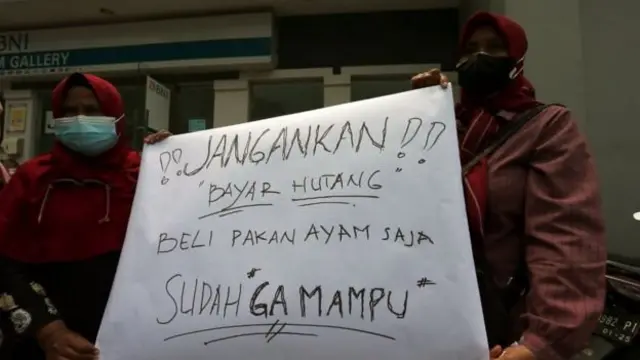 BNI
GALLERY
BNI
!! JANGANKAN !!
"BAYAR HUTANG"
BELI PAKAN AYAM SAJA
SUDAH "GA MAMPU"